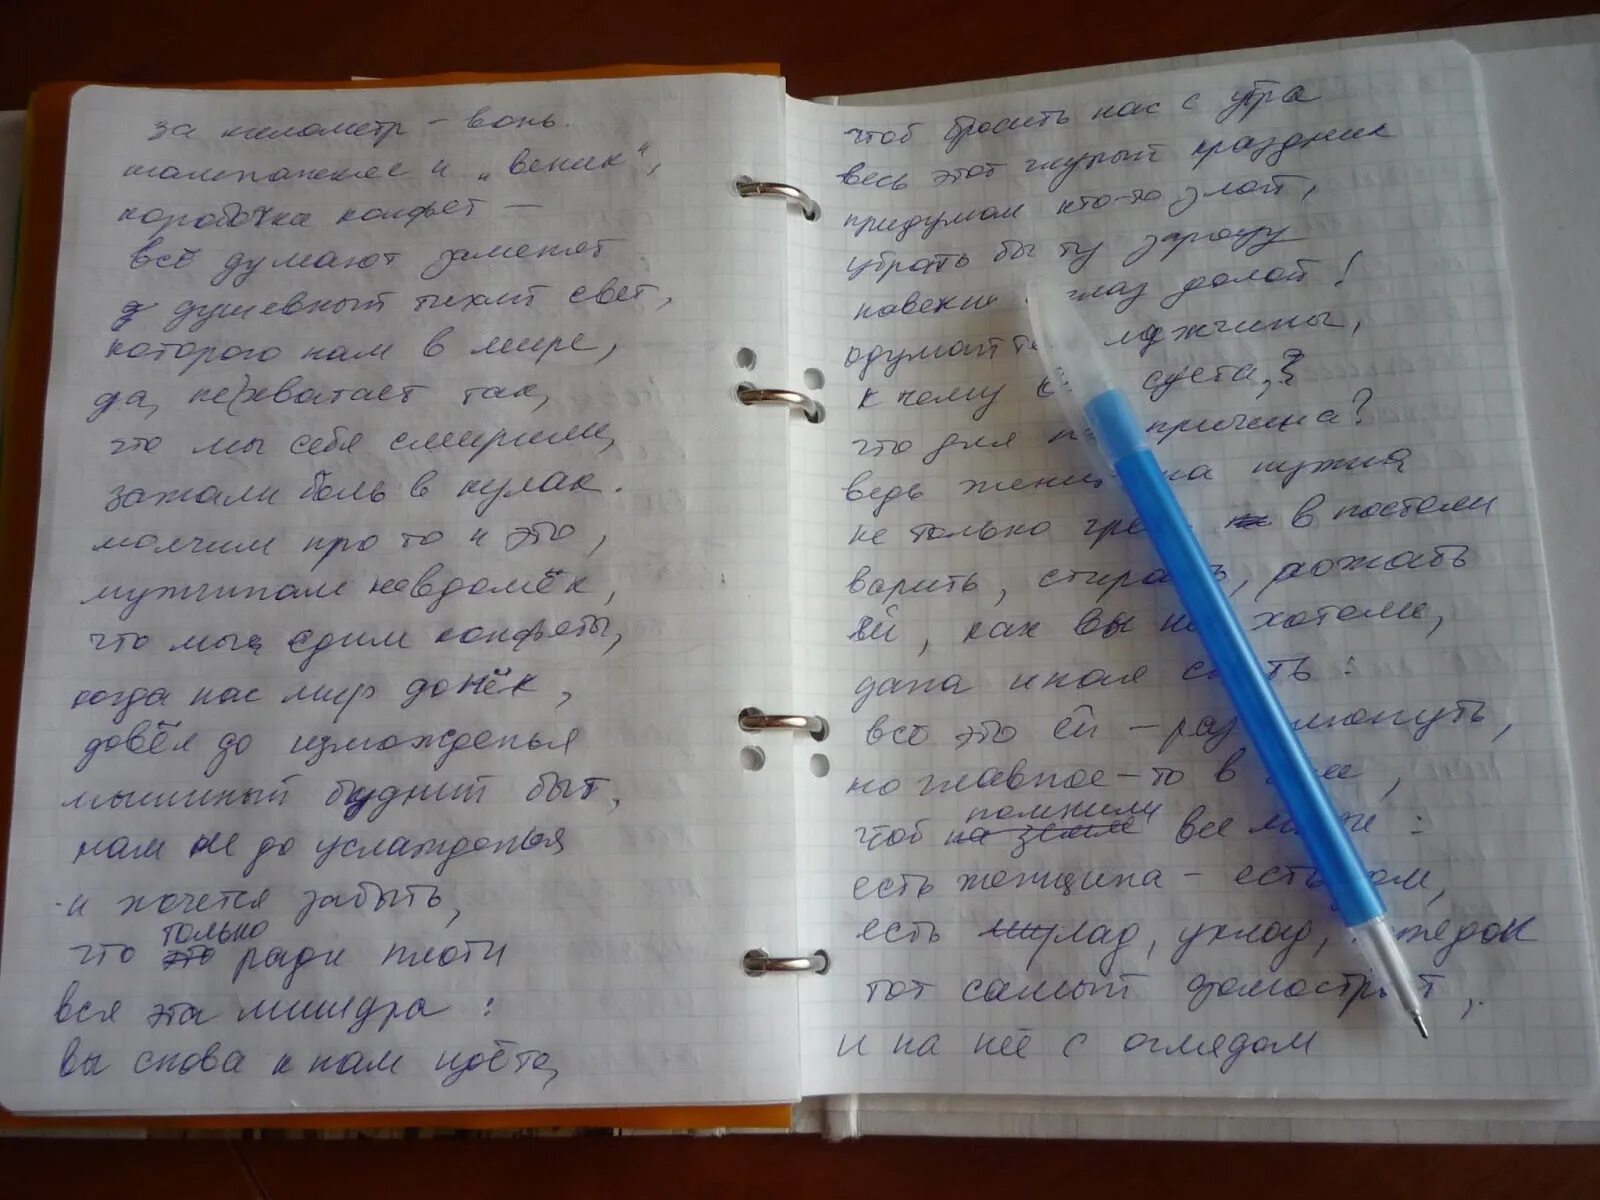 за километр – вонь.
шампанское и „веник“,
коробочка конфет —
всё думают заменят
душевный тихий свет,
которого нам в мире,
да, не хватает так,
что мы себя смирили,
зажали боль в кулак.
молчим про то и это,
мужчинам невдомёк,
что мы едим конфеты,
когда нас мир допёк,
довёл до изможденья
мышиный будний быт,
нам не до услажденья
и хочется забыть,
что только ради плоти
вся эта мишура:
вы снова к нам идёте,
чтоб бросить нас с утра
весь этот глупый праздник
придумал кто-то злой,
убрать бы ту заразу
навеки глаз долой!
одумайтесь мужчины,
к чему суета,?
что для причина?
ведь женщина нужна
не только в постели
варить, стирать, рожать
ей, как вы не хотели,
дана иная суть:
всё это ей –
но главное – то в
чтоб помнили все
есть женщина – есть дом,
есть лад, уклад, порядок
тот самый домострой,
и на неё с оглядом